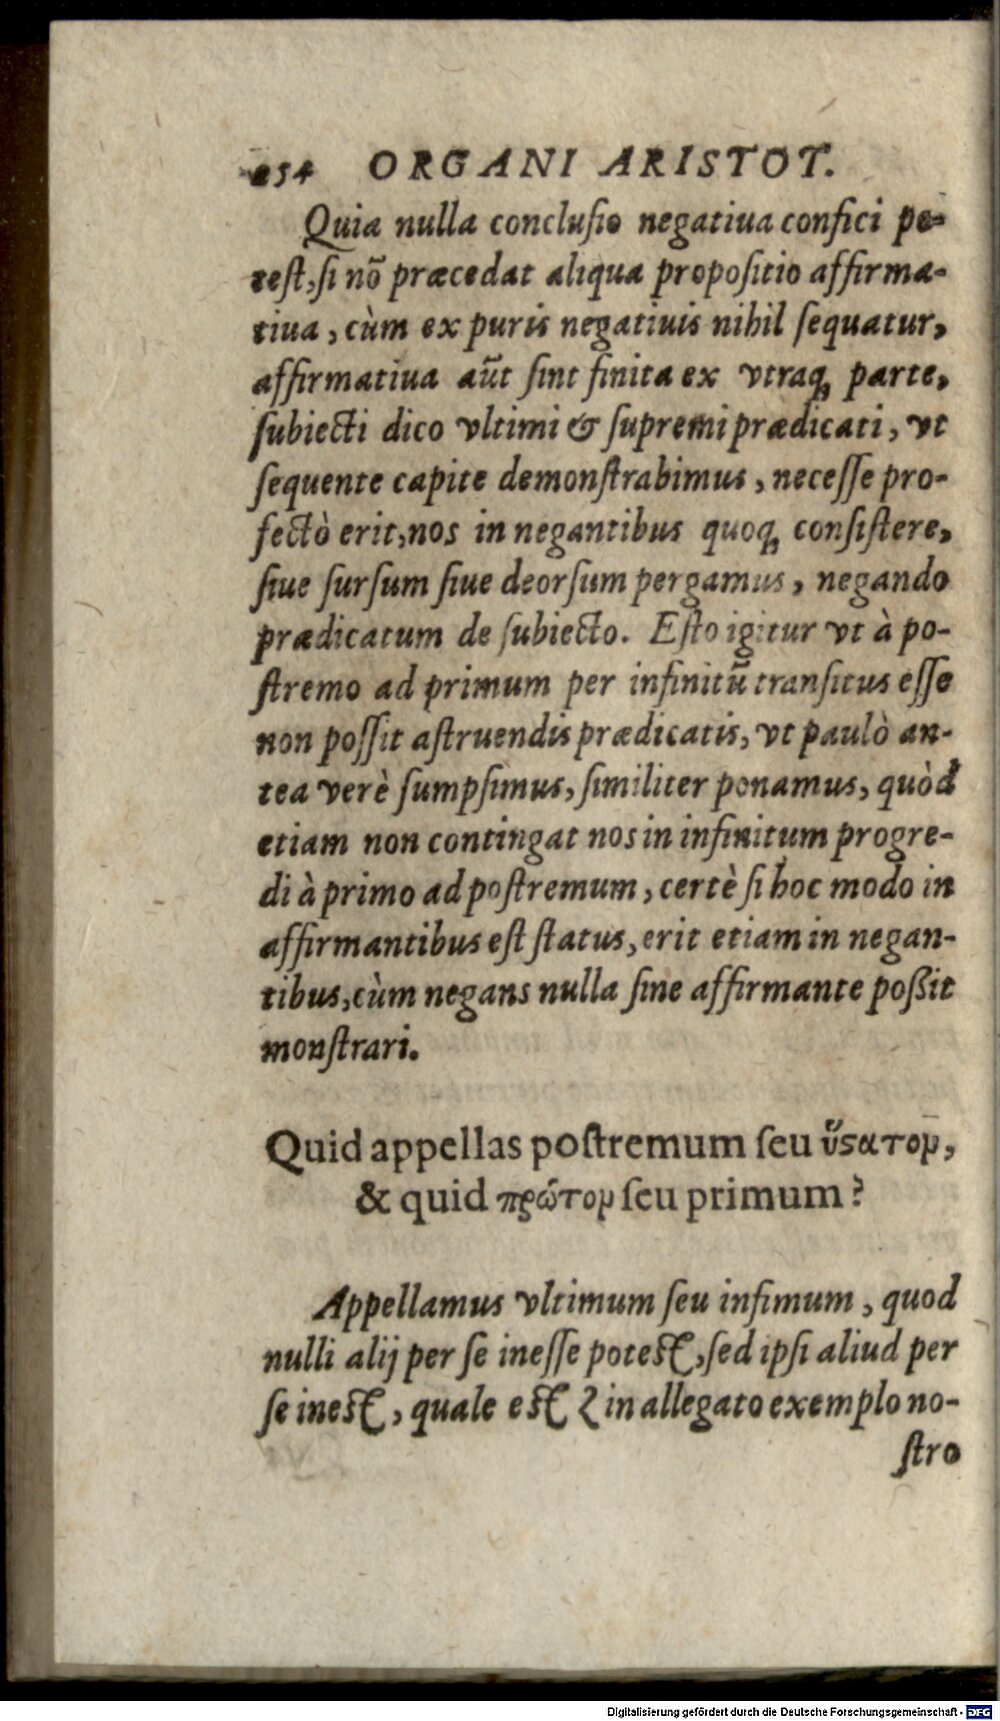 254 ORGANI ARISTOT.
Quia nulla conclusio negatiua confici po-
test, si nõ præcedat aliqua propositio affirma-
tiua, cùm ex puris negatiuis nihil sequatur,
affirmatiua aũt sint finita ex vtraq; parte,
subiecti dico vltimi & supremi prædicati, vt
sequente capite demonstrabimus, necesse pro-
fectò erit, nos in negantibus quoq; consistere,
siue sursum siue deorsum pergamus, negando
prædicatum de subiecto. Esto igitur vt à po-
stremo ad primum per infinitũ transitus esse
non possit astruendis prædicatis, vt paulò an-
tea verè sumpsimus, similiter ponamus, quòd
etiam non contingat nos in infinitum progre-
di à primo ad postremum, certè si hoc modo in
affirmantibus est status, erit etiam in negan-
tibus, cùm negans nulla sine affirmante poßit
monstrari.
Quid appellas postremum seu ὕϛατον,
& quid πρῶτον seu primum?
Appellamus vltimum seu infimum, quod
nulli alij per se inesse potest, sed ipsi aliud per
se inest, quale est ζ in allegato exemplo no-
stro
Digitalisierung gefördert durch die Deutsche Forschungsgemeinschaft - DFG